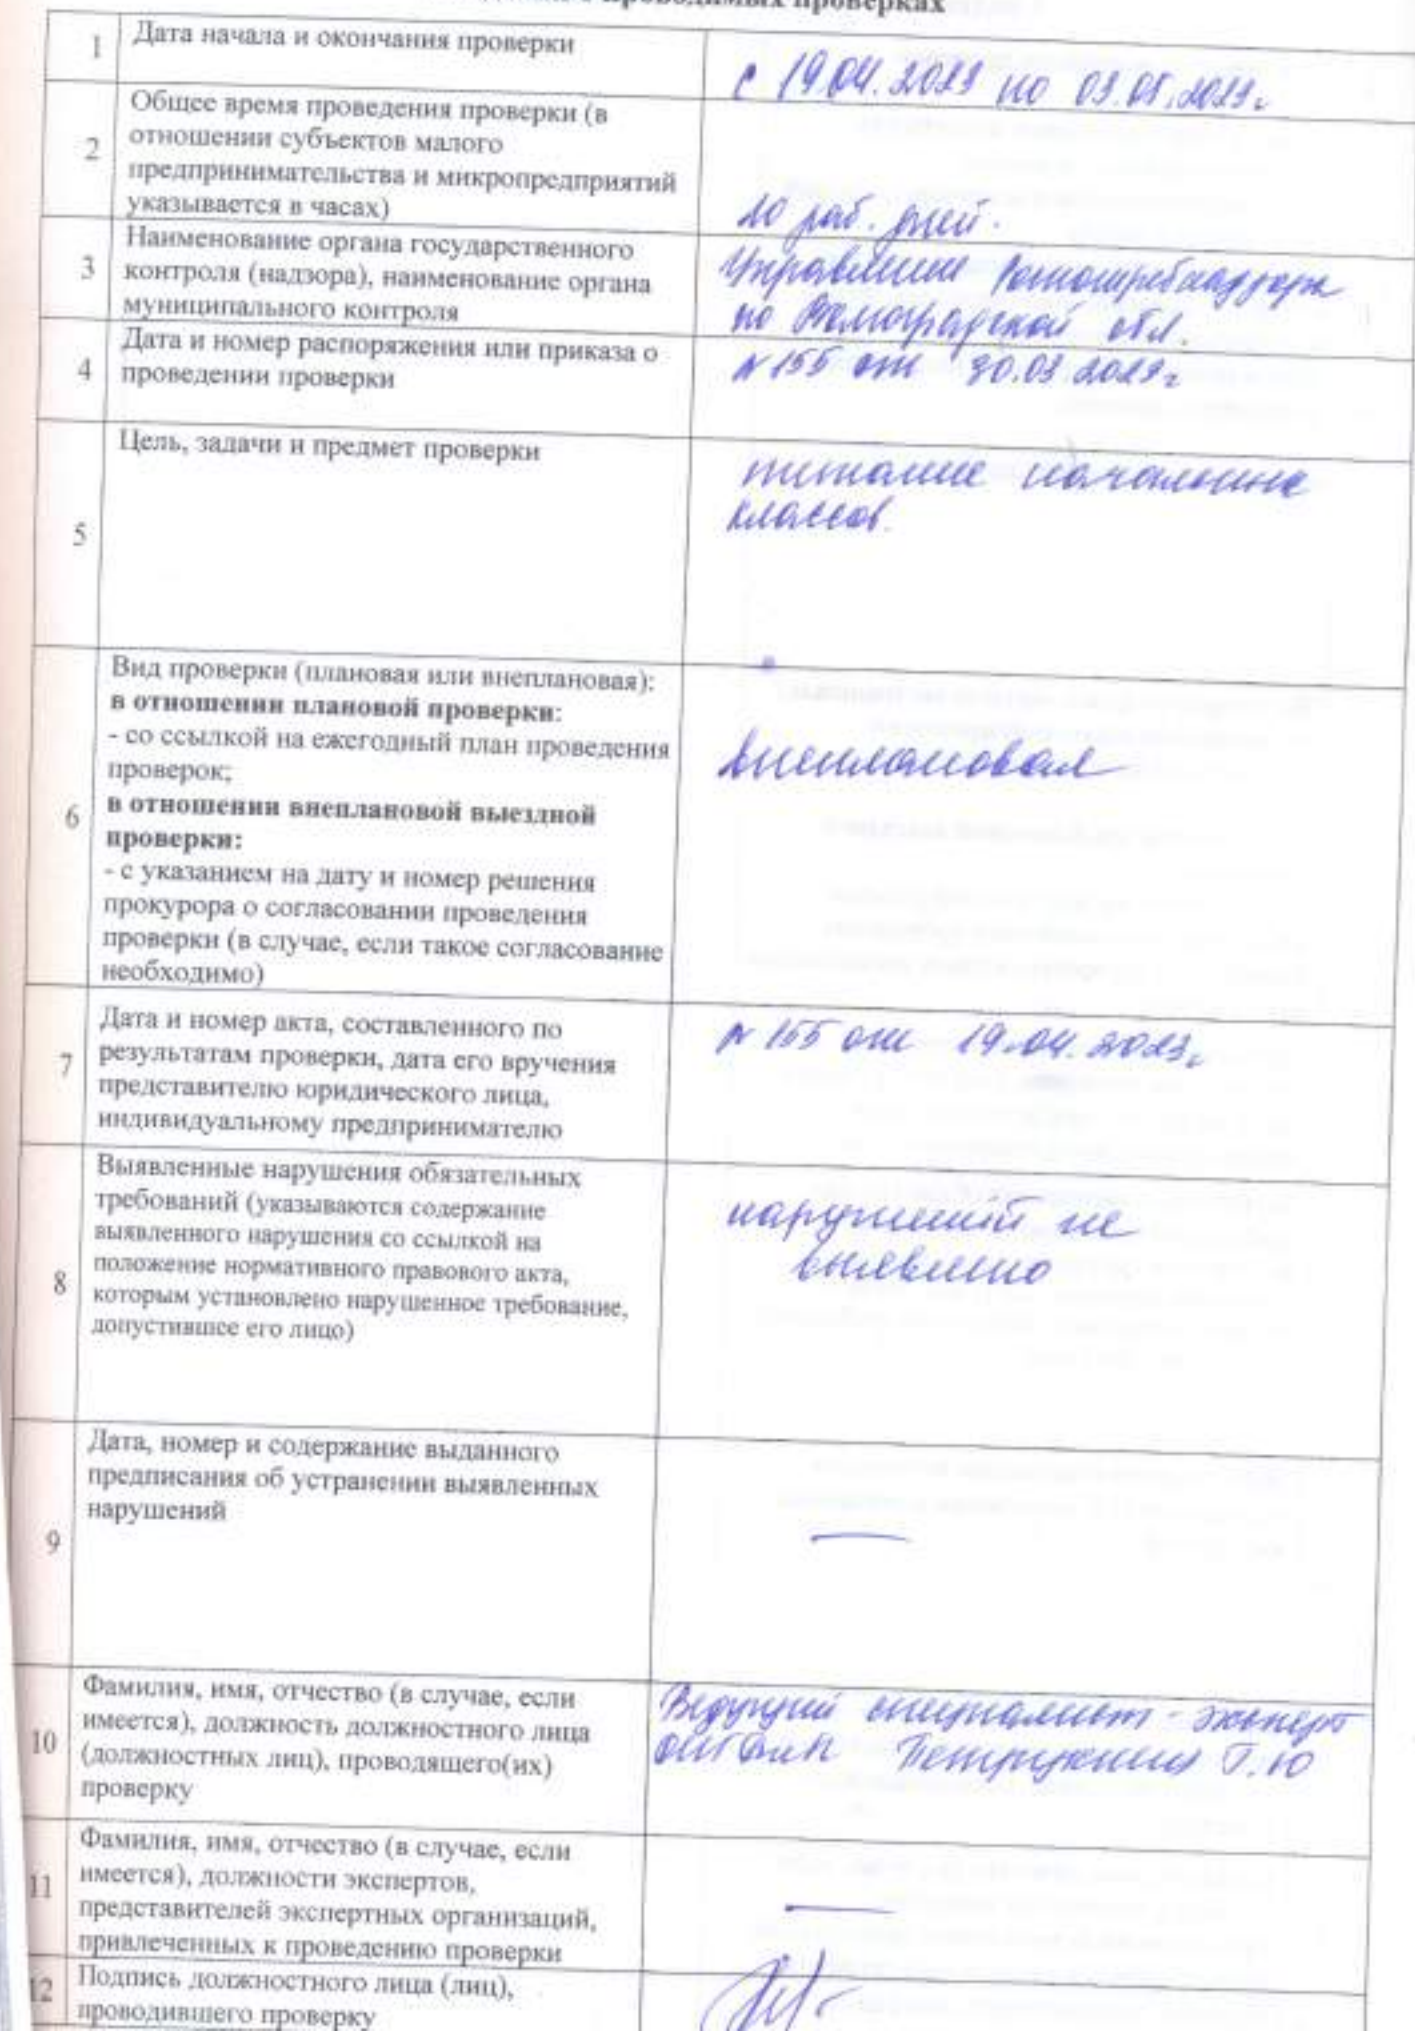 проводимых проверках
1
Дата начала и окончания проверки
с 19.04.2023 по 03.05.2023г
2
Общее время проведения проверки (в
отношении субъектов малого
предпринимательства и микропредприятий
указывается в часах)
10 раб. дней.
3
Наименование органа государственного
контроля (надзора), наименование органа
муниципального контроля
Управление Роспотребнадзора
по Волгоградской обл.
4
Дата и номер распоряжения или приказа о
проведении проверки
№155 от 30.03.2023г
5
Цель, задачи и предмет проверки
питание начальных
классов.
6
Вид проверки (плановая или внеплановая):
в отношении плановой проверки:
- со ссылкой на ежегодный план проведения
проверок;
в отношении внеплановой выездной
проверки:
- с указанием на дату и номер решения
прокурора о согласовании проведения
проверки (в случае, если такое согласование
необходимо)
внеплановая
7
Дата и номер акта, составленного по
результатам проверки, дата его вручения
представителю юридического лица,
индивидуальному предпринимателю
№ 155 от 19.04.2023г
8
Выявленные нарушения обязательных
требований (указываются содержание
выявленного нарушения со ссылкой на
положение нормативного правового акта,
которым установлено нарушенное требование,
допустившее его лицо)
нарушений не
выявлено
9
Дата, номер и содержание выданного
предписания об устранении выявленных
нарушений
—
10
Фамилия, имя, отчество (в случае, если
имеется), должность должностного лица
(должностных лиц), проводящего(их)
проверку
Ведущий специалист - эксперт
Т.Ю
11
Фамилия, имя, отчество (в случае, если
имеется), должности экспертов,
представителей экспертных организаций,
привлеченных к проведению проверки
—
12
Подпись должностного лица (лиц),
проводившего проверку